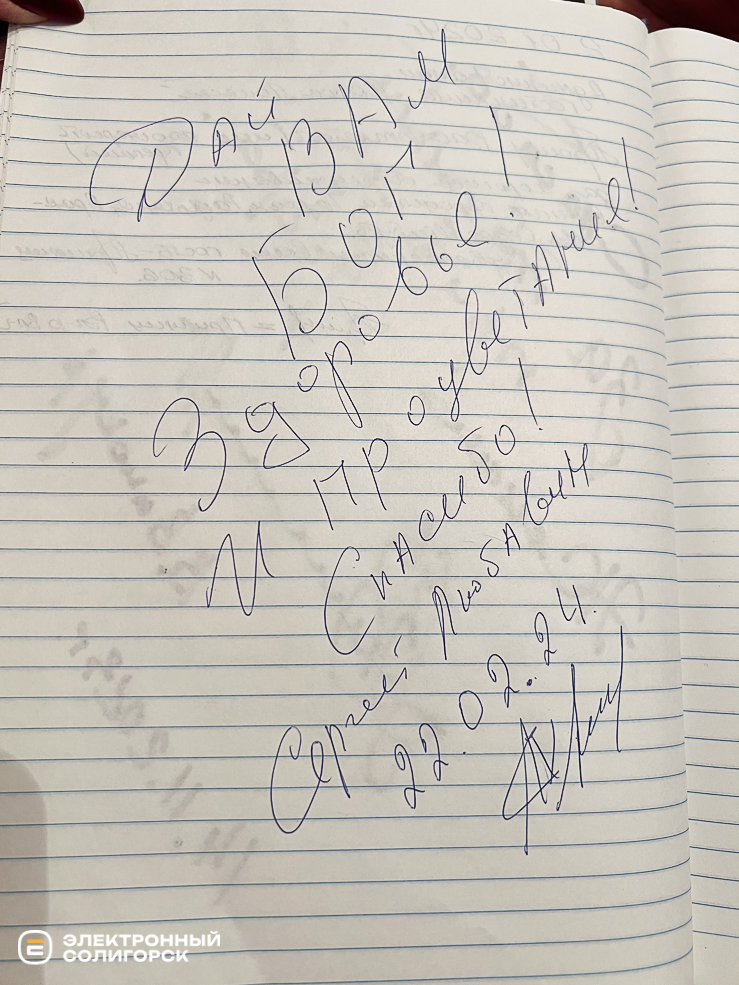 Дай Вам
Бог
Здоровье!
и процветание!
Спасибо!
Сергей Любавин
22.02.24.
ЭЛЕКТРОННЫЙ
СОЛИГОРСК